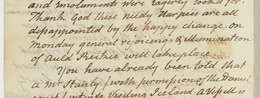 and emolument were eagerly looked for.
Thank God these needy Harpies are all
disappointed by the happy change. on
Monday general rejoicings & illumination
of Auld Reekie will take place.
You have already been told that
a Mr Stanly (with permission of the Dane
Iceland a Vessell is